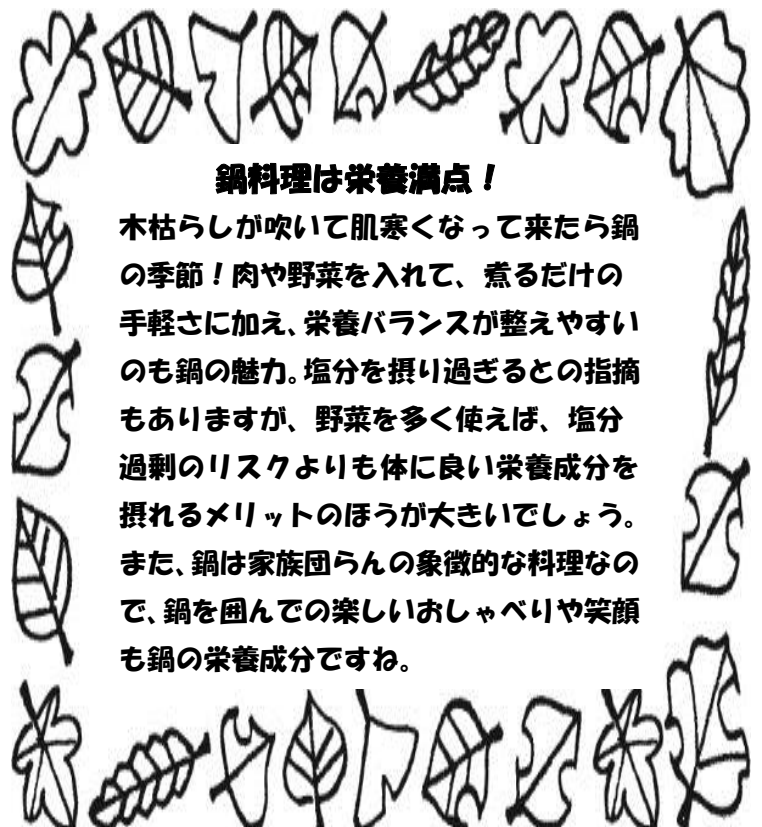 鍋料理は栄養満点！
木枯らしが吹いて肌寒くなって来たら鍋
の季節！肉や野菜を入れて、煮るだけの
手軽さに加え、栄養バランスが整えやすい
のも鍋の魅力。塩分を摂り過ぎるとの指摘
もありますが、野菜を多く使えば、塩分
過剰のリスクよりも体に良い栄養成分を
摂れるメリットのほうが大きいでしょう。
また、鍋は家族団らんの象徴的な料理なの
で、鍋を囲んでの楽しいおしゃべりや笑顔
も鍋の栄養成分ですね。